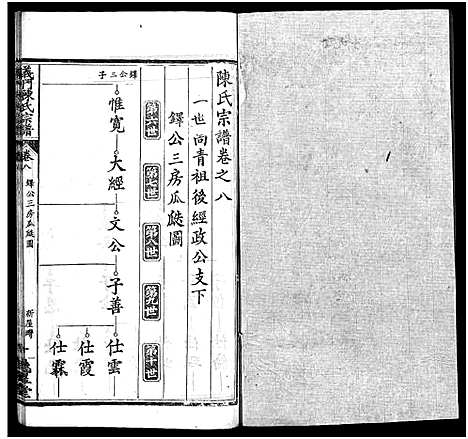 陳氏宗譜卷之八
一世尚青祖後經政公支下
鐸公三房瓜瓞圖
第六世
第七世
第八世
第九世
第十世
鐸公三子
惟寬
大經
文公
子善
仕雲
仕霞
仕霖
義門陳氏宗譜
卷八
鐸公三房瓜瓞圖